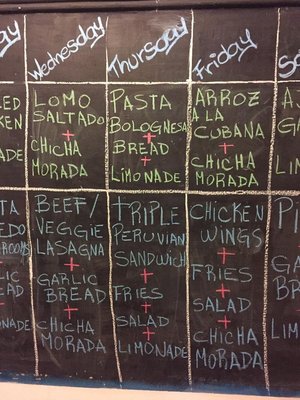 Wednesday Thursday Friday
LOMO
SALTADO
+
CHICHA
MORADA
PASTA
BOLOGNESA
+
BREAD
+
LIMONADE
ARROZ
A LA
CUBANA
+
CHICHA
MORADA
BEEF/
VEGGIE
LASAGNA
+
GARLIC
BREAD
+
CHICHA
MORADA
TRIPLE
PERUVIAN
SANDWICH
+
FRIES
+
SALAD
+
LIMONADE
CHICKEN
WINGS
+
FRIES
+
SALAD
+
CHICHA
MORADA